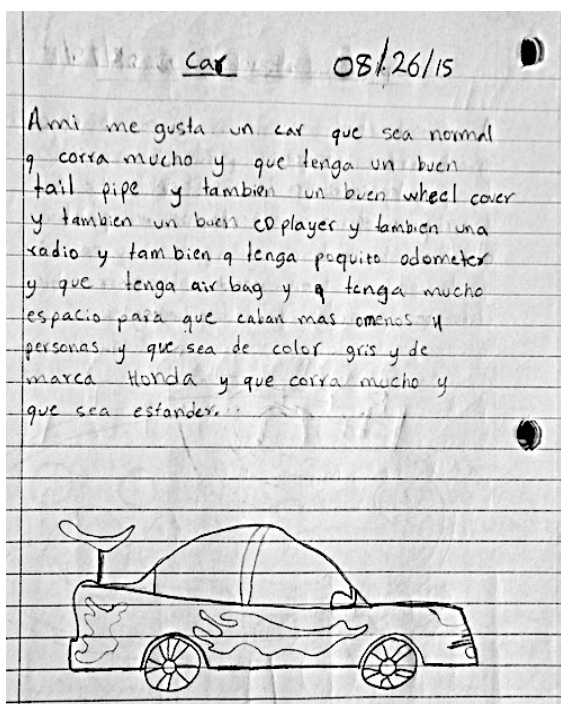 Car 08/26/15
Ami me gusta un car que sea normal
q corra mucho y que tenga un buen
tail pipe y tambien un buen wheel cover
y tambien un buen CD player y tambien una
radio y tam bien q tenga poquito odometer
y que tenga air bag y q tenga mucho
espacio para que caban mas omenos 4
personas y que sea de color gris y de
marca Honda y que corra mucho y
que sea estander.